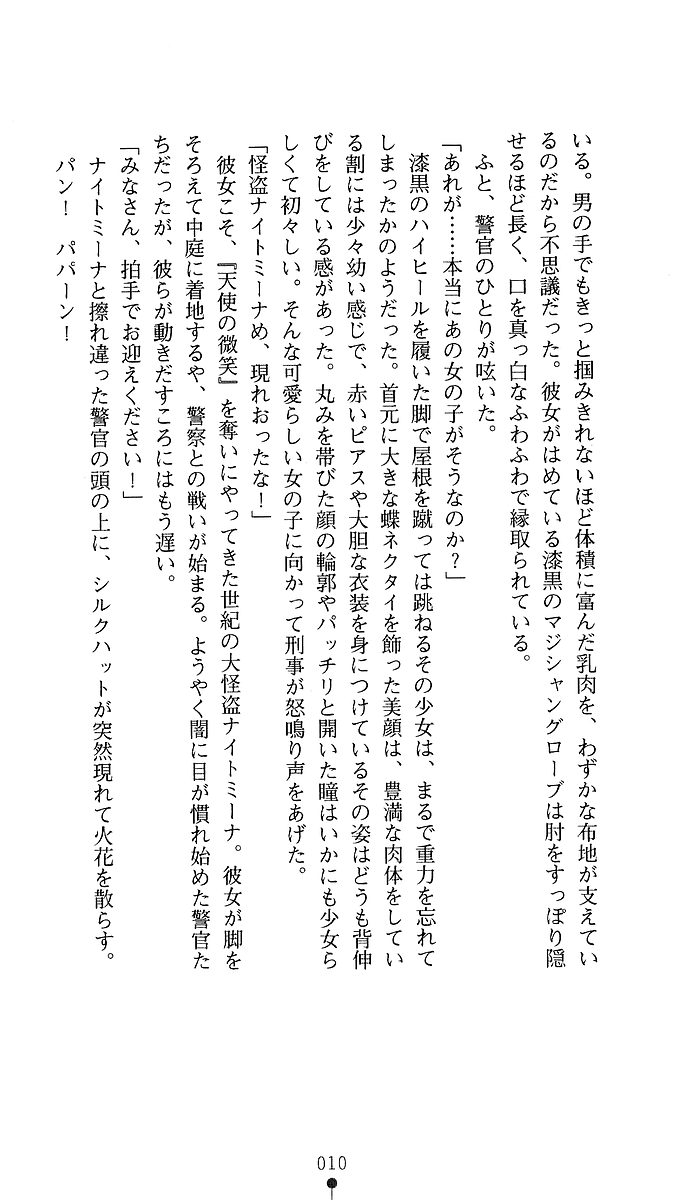 いる。男の手でもきっと掴みきれないほど体積に富んだ乳肉を、わずかな布地が支えてい
るのだから不思議だった。彼女がはめている漆黒のマジシャングローブは肘をすっぽり隠
せるほど長く、口を真っ白なふわふわで縁取られている。
ふと、警官のひとりが呟いた。
「あれが……本当にあの女の子がそうなのか？」
漆黒のハイヒールを履いた脚で屋根を蹴っては跳ねるその少女は、まるで重力を忘れて
しまったかのようだった。首元に大きな蝶ネクタイを飾った美顔は、豊満な肉体をしてい
る割には少々幼い感じで、赤いピアスや大胆な衣装を身につけているその姿はどうも背伸
びをしている感があった。丸みを帯びた顔の輪郭やパッチリと開いた瞳はいかにも少女ら
しくて初々しい。そんな可愛らしい女の子に向かって刑事が怒鳴り声をあげた。
「怪盗ナイトミーナめ、現れおったな！」
彼女こそ、『天使の微笑』を奪いにやってきた世紀の大怪盗ナイトミーナ。彼女が脚を
そろえて中庭に着地するや、警察との戦いが始まる。ようやく闇に目が慣れ始めた警官た
ちだったが、彼らが動きだすころにはもう遅い。
「みなさん、拍手でお迎えください！」
ナイトミーナと擦れ違った警官の頭の上に、シルクハットが突然現れて火花を散らす。
パン！　パパーン！
010